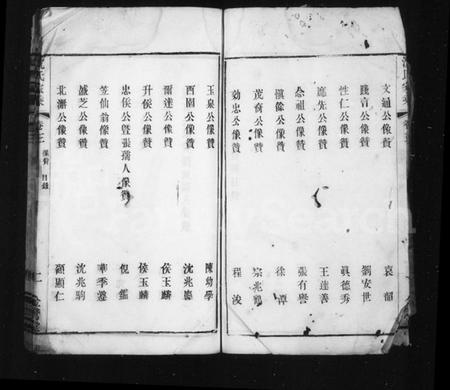 文通公像贊 袁韶
踐言公像贊 劉安世
性仁公像贊 眞德秀
應先公像贊 王蓬善
念祖公像贊 張有譽
愼餘公像贊 徐譚
茂裔公像贊 宗兆
効忠公像贊 程浚
玉泉公像贊 陳幼學
西園公像贊 沈兆
爾達公像贊 侯玉麟
升侯公像贊 侯玉麟
忠侯公曁張孺人像贊 倪鑑
笠仙翁像贊 華季
盛芝公像贊 沈兆駒
北灘公像贊 顧顯仁
氏家乘 卷二 像贊 目錄
二